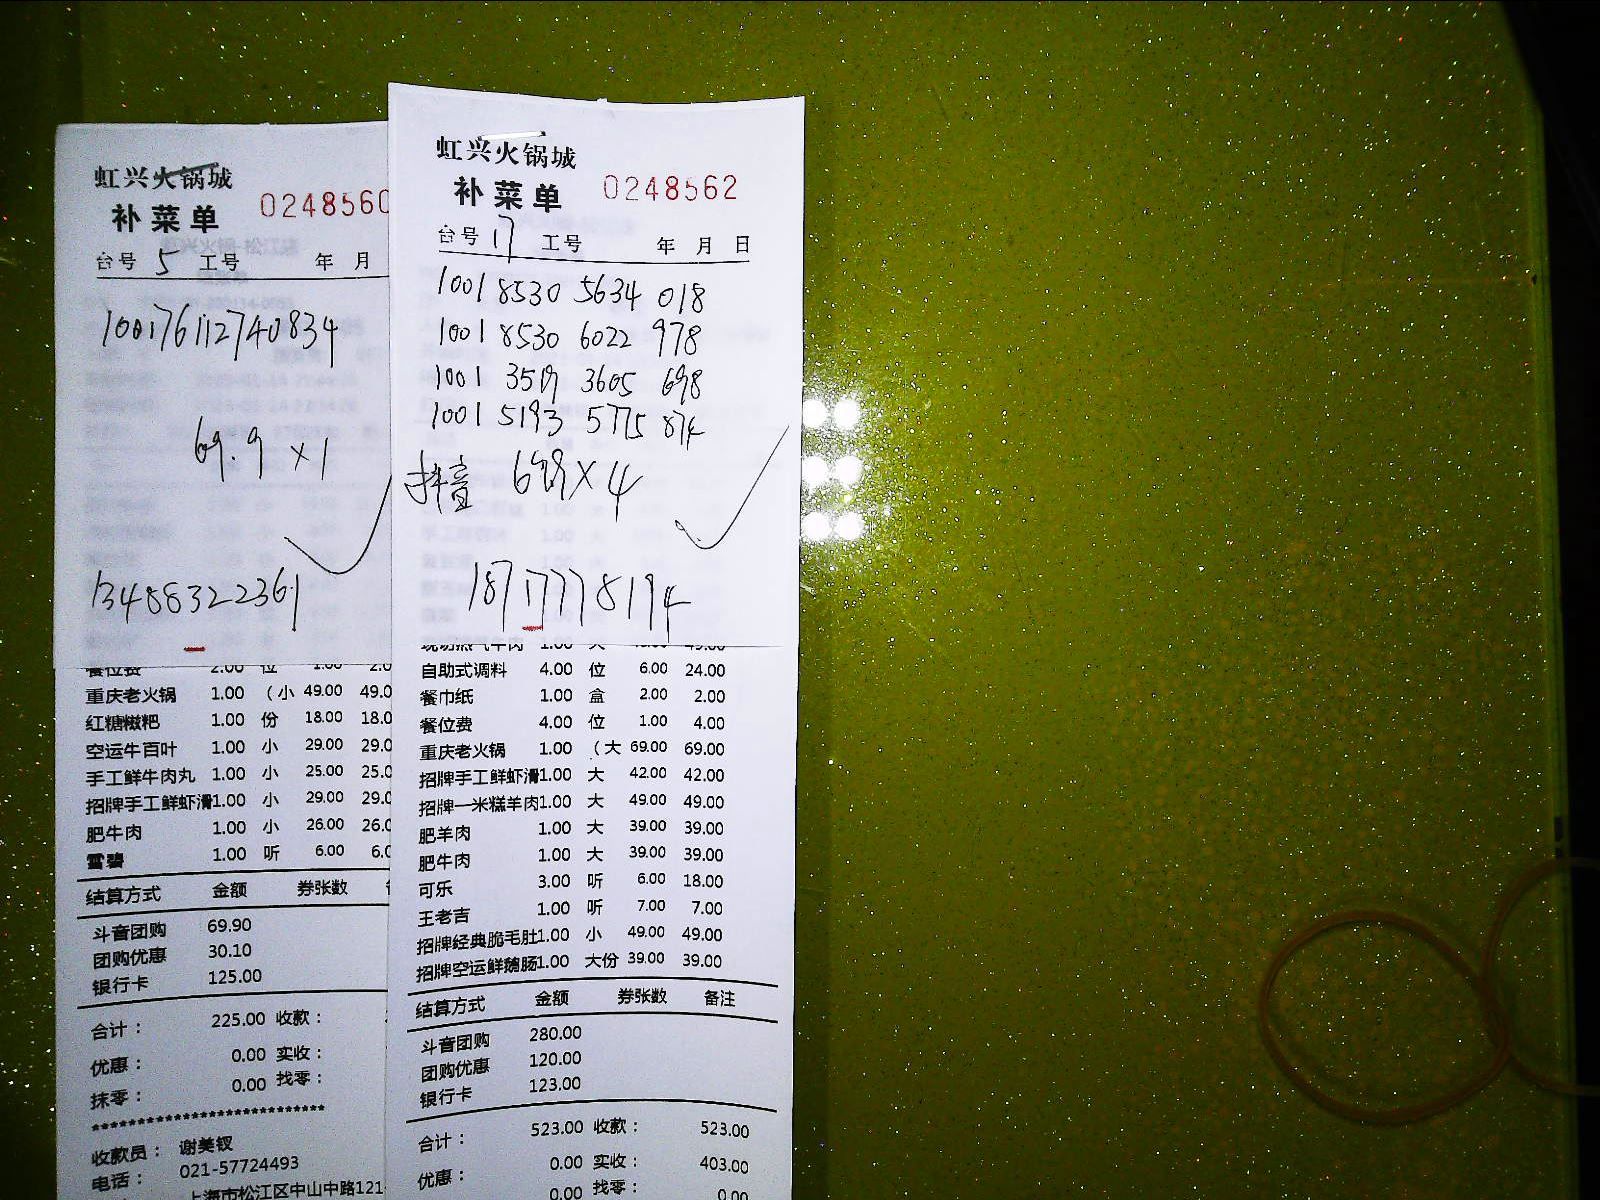 虹兴火锅城
补菜单 0248560
台号 5 工号 年 月
100176112740834
69.9 ×1
13488322361
餐位费 2.00 位 1.00 2.0
重庆老火锅 1.00 （小 49.00 49.0
红糖糍粑 1.00 份 18.00 18.0
空运牛百叶 1.00 小 29.00 29.0
手工鲜牛肉丸 1.00 小 25.00 25.0
招牌手工鲜虾滑1.00 小 29.00 29.0
肥牛肉 1.00 小 26.00 26.0
雪碧 1.00 听 6.00 6.0
结算方式 金额 券张数
斗音团购 69.90
团购优惠 30.10
银行卡 125.00
合计： 225.00 收款：
优惠： 0.00 实收：
抹零： 0.00 找零：
****************************
收款员： 谢美钗
电话： 021-57724493
上海市松江区中山中路121
虹兴火锅城
补菜单 0248562
台号 17 工号 年 月 日
1001 8530 5634 018
1001 8530 6022 978
1001 3519 3605 698
1001 5193 5775 874
抖音 ×4
18717778194
现切热气牛肉 1.00 大 49.00
自助式调料 4.00 位 6.00 24.00
餐巾纸 1.00 盒 2.00 2.00
餐位费 4.00 位 1.00 4.00
重庆老火锅 1.00 （大 69.00 69.00
招牌手工鲜虾滑1.00 大 42.00 42.00
招牌一米糕羊肉1.00 大 49.00 49.00
肥羊肉 1.00 大 39.00 39.00
肥牛肉 1.00 大 39.00 39.00
可乐 3.00 听 6.00 18.00
王老吉 1.00 听 7.00 7.00
招牌经典脆毛肚1.00 小 49.00 49.00
招牌空运鲜鹅肠1.00 大份 39.00 39.00
结算方式 金额 券张数 备注
斗音团购 280.00
团购优惠 120.00
银行卡 123.00
合计： 523.00 收款： 523.00
优惠： 0.00 实收： 403.00
0.00 找零： 0.00